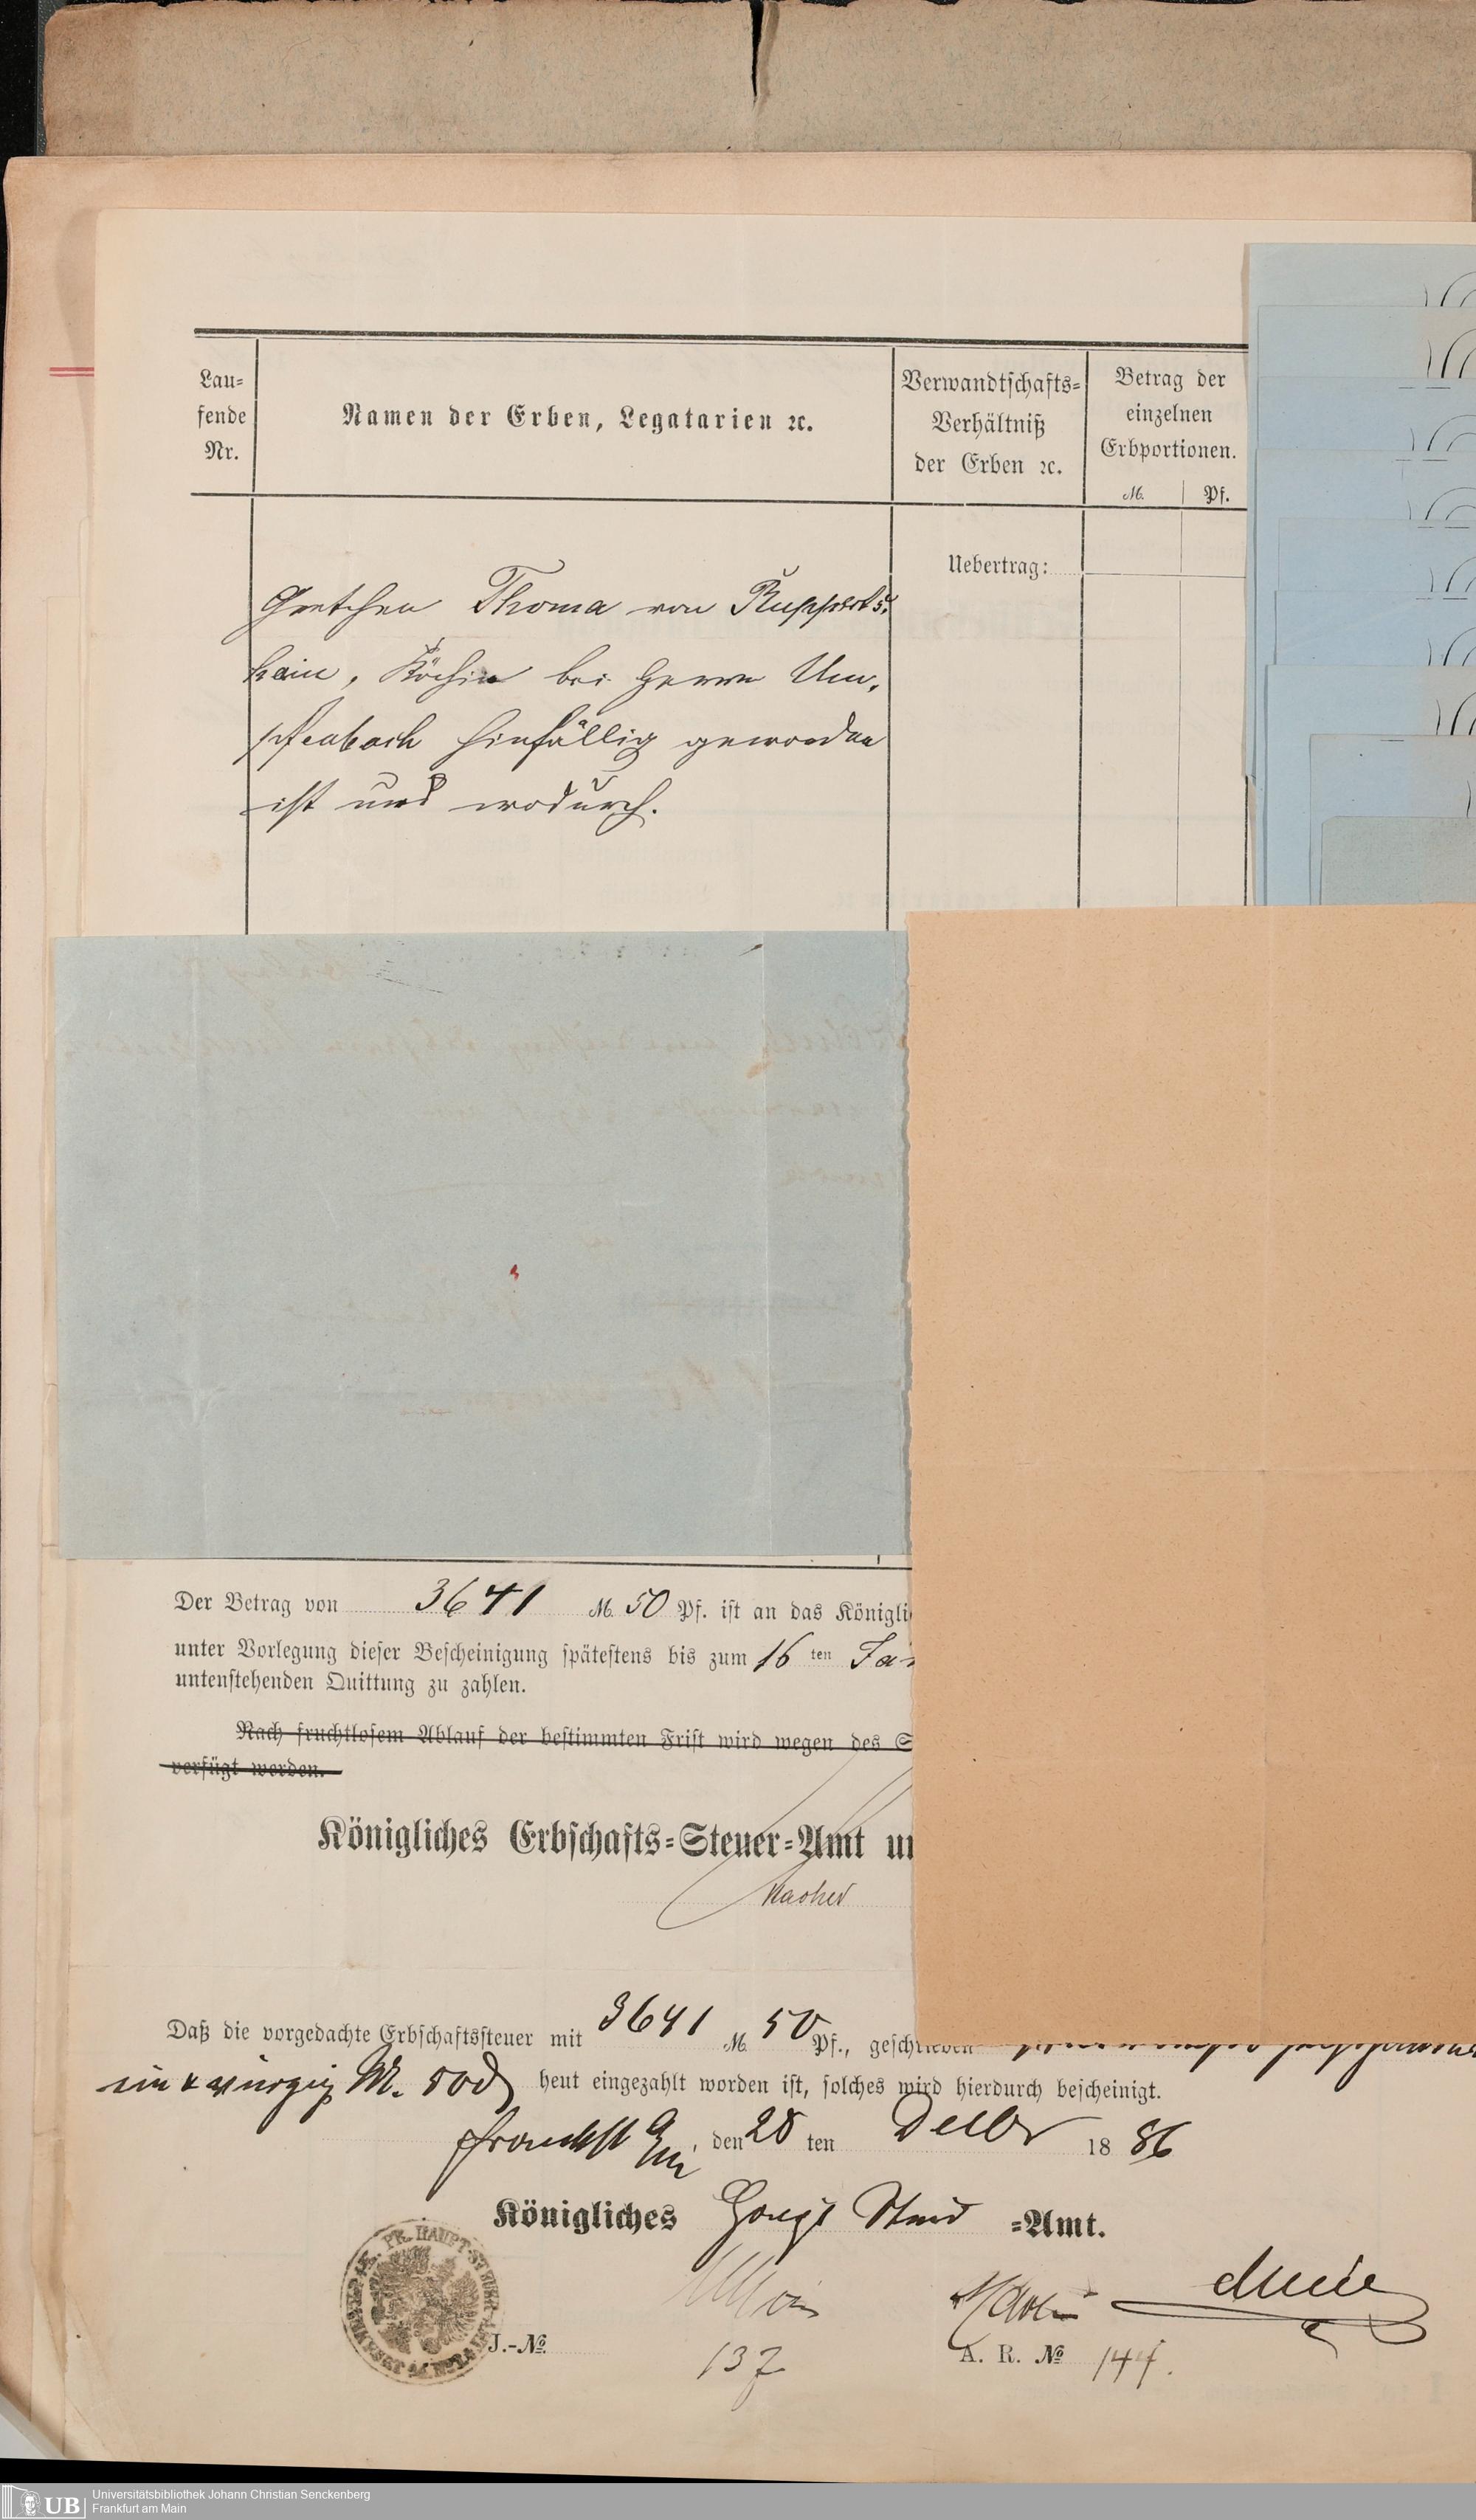 Lau-
fende
Nr.
Namen der Erben, Legatarien ꝛc.
Verwandtschafts-
Verhältniß
der Erben ꝛc.
Betrag der
einzelnen
Erbportionen.
M. Pf.
Uebertrag:
Gretchen Thoma von Rupperts-
hain, Köchin bei Herrn Um-
pfenbach hinfällig geworden
ist und wodurch.
Der Betrag von 3641 M. 50 Pf. ist an das Königli
unter Vorlegung dieser Bescheinigung spätestens bis zum 16 ten Ja
untenstehenden Quittung zu zahlen.
Nach fruchtlosem Ablauf der bestimmten Frist wird wegen des S
verfügt werden.
Königliches Erbschafts-Steuer-Amt
Daß die vorgedachte Erbschaftssteuer mit 3641 M. 50 Pf., geschrieben
ein & vierzig M. 50 heut eingezahlt worden ist, solches wird hierdurch bescheinigt.
den 28 ten Decbr 1886
Königliches Haupt Steuer -Amt.
PR. HAUPT-STEUER-AMT
J.-№ 137
A. R. № 144.
UB
Universitätsbibliothek Johann Christian Senckenberg
Frankfurt am Main